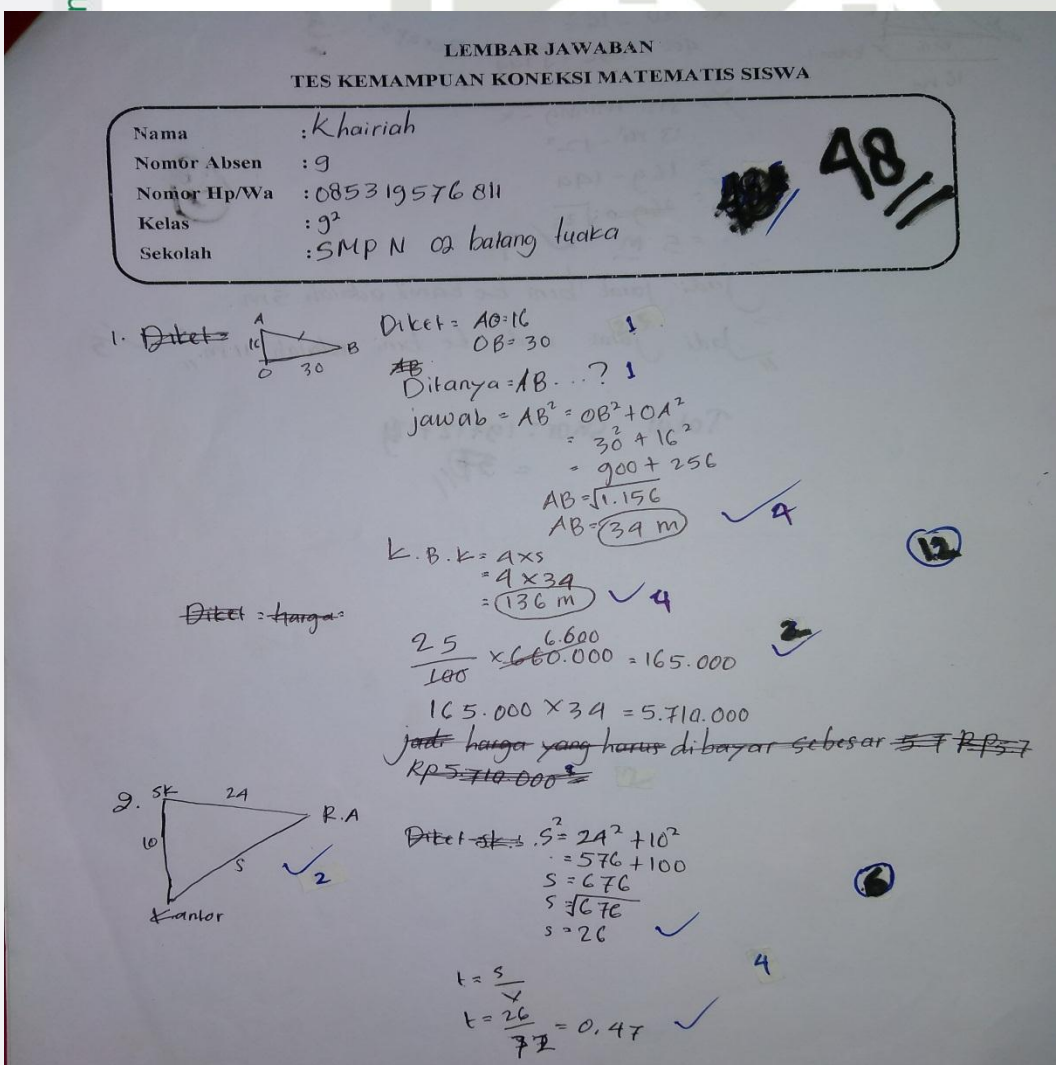 LEMBAR JAWABAN
TES KEMAMPUAN KONEKSI MATEMATIS SISWA
Nama : Khairiah
Nomor Absen : 9
Nomor Hp/Wa : 085319576811
Kelas : 9²
Sekolah : SMP N 02 batang tuaka
48
1. Diket=
A
16
O
30
B
Diket = AO=16 1
OB= 30
AB
Ditanya = AB...? 1
jawab = AB² = OB² + OA²
= 30² + 16²
= 900 + 256
AB = √1.156
AB = 34 m 4
K.B.K = 4xs
= 4 x 34
= 136 m 4
12
Diket = harga=
25/100 x 660.000 6.600 = 165.000 2
165.000 x 34 = 5.710.000
jadi harga yang harus dibayar sebesar 57 RP57
RP5.710.000
2. SK 24 R.A
10
S
2
Kantor
Diket sk. S² = 24² + 10²
= 576 + 100
S = 676
S = √676
S = 26
6
4
t = s/v
t = 26/72 = 0,47